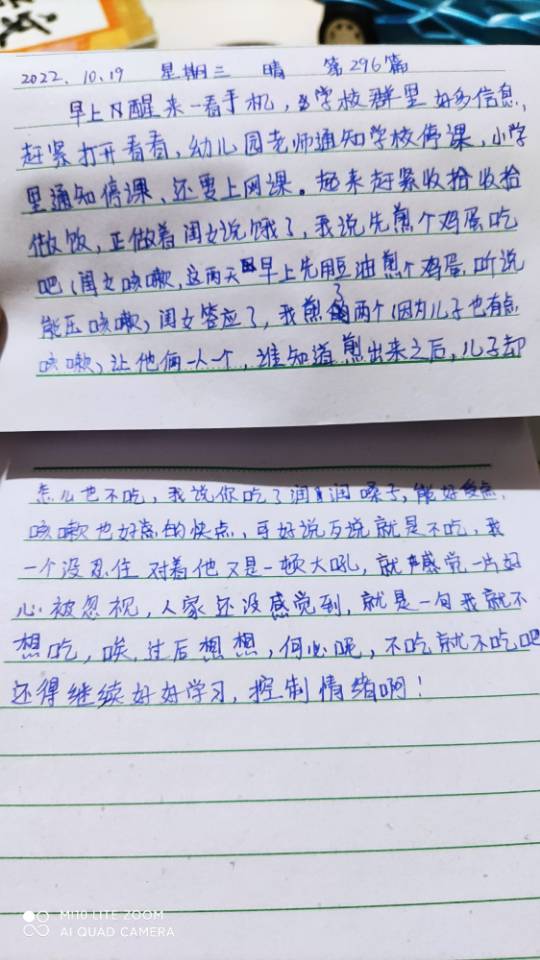 2022.10.19 星期三 晴 第296篇
早上醒来一看手机,学校群里好多信息,
赶紧打开看看,幼儿园老师通知学校停课,小学
里通知停课,还要上网课。起来赶紧收拾收拾
做饭,正做着闺女说饿了,我说先煎个鸡蛋吃
吧(闺女咳嗽,这两天早上先用豆油煎个鸡蛋,听说
能压咳嗽)闺女答应了,我煎了两个(因为儿子也有点
咳嗽)让他俩一人一个,谁知道煎出来之后,儿子却
怎么也不吃,我说你吃了润润嗓子,能好受点,
咳嗽也好的快点,可好说歹说就是不吃,我
一个没忍住对着他又是一顿大吼,就感觉一片好
心被忽视,人家还没感觉到,就是一句我就不
想吃,唉,过后想想,何必呢,不吃就不吃吧
还得继续好好学习,控制情绪啊!
MI 10 LITE ZOOM
AI QUAD CAMERA